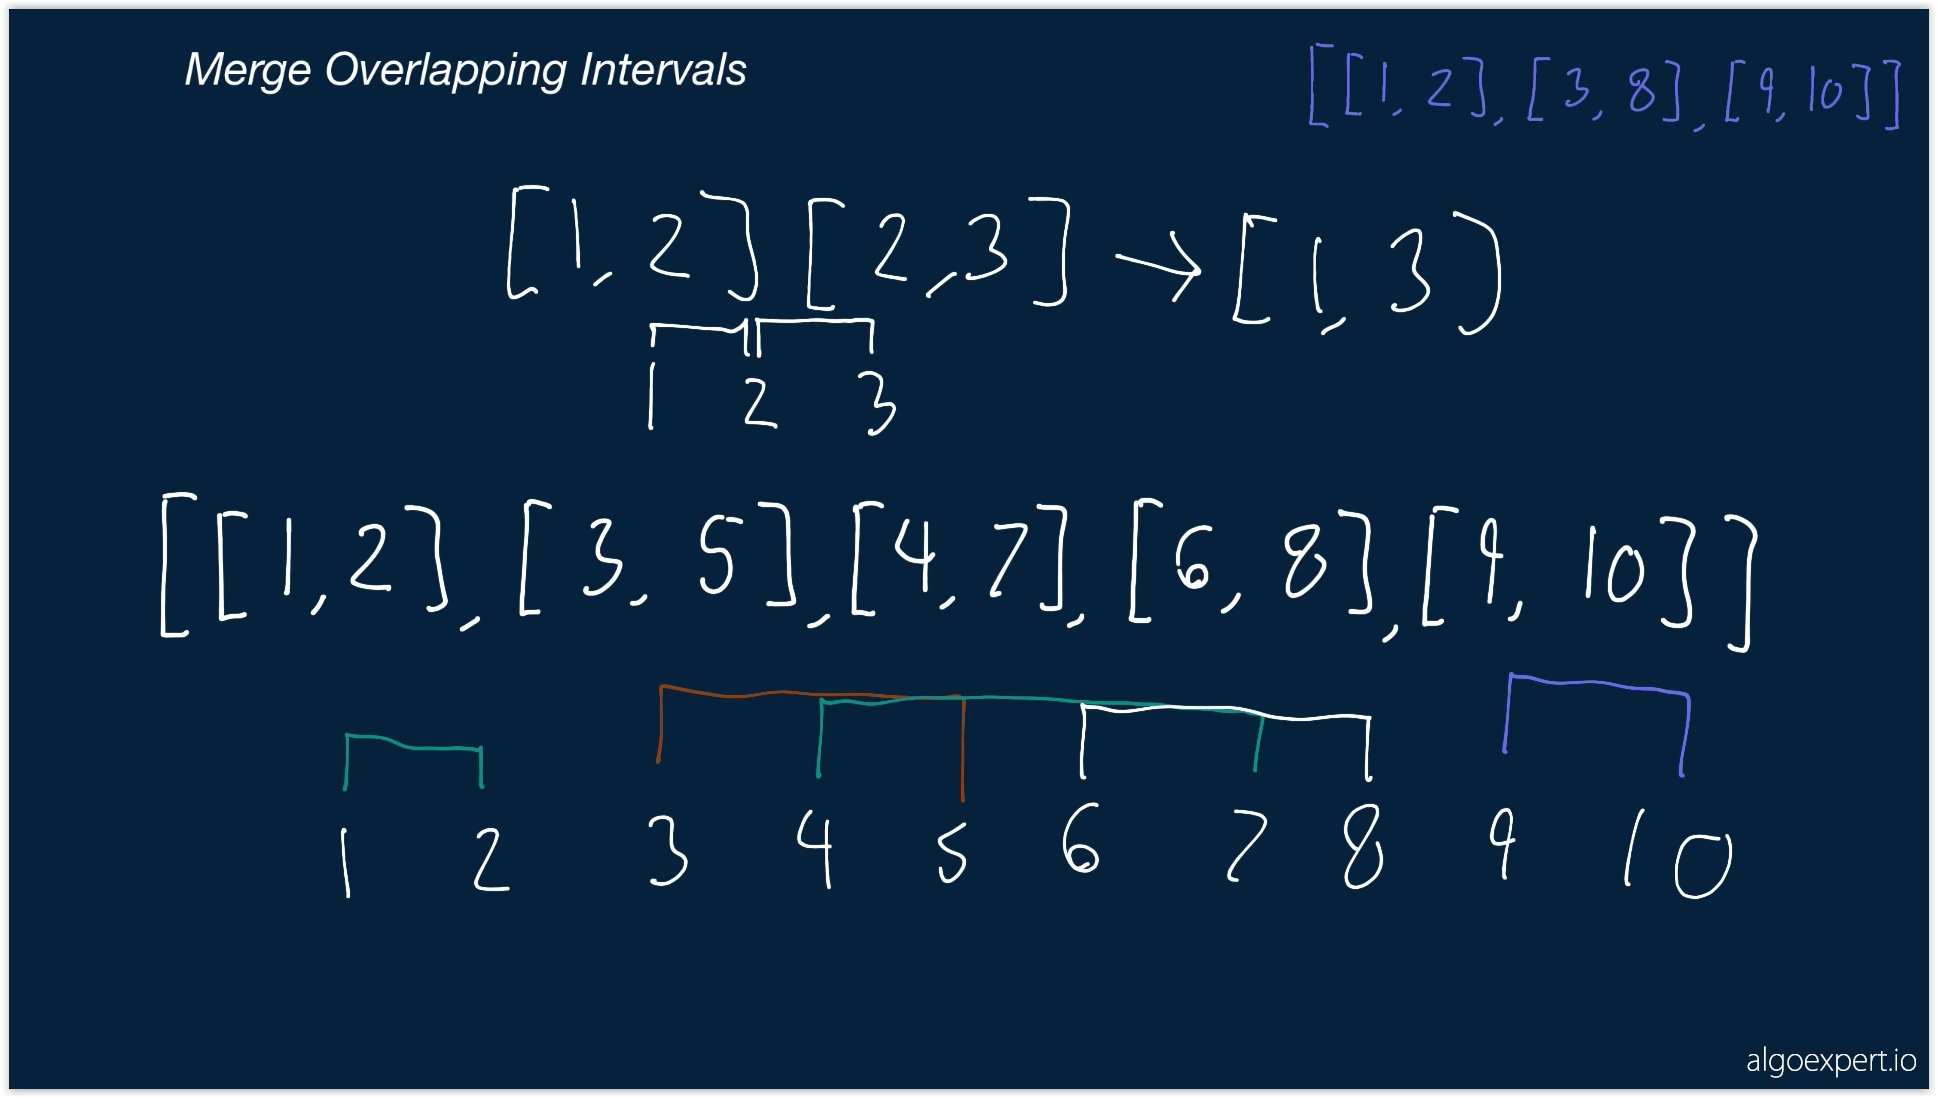 Merge Overlapping Intervals
[[1, 2], [3, 8], [9, 10]]
[1, 2] [2, 3] → [1, 3]
1 2 3
[[1, 2], [3, 5], [4, 7], [6, 8], [9, 10]]
1 2 3 4 5 6 7 8 9 10
algoexpert.io